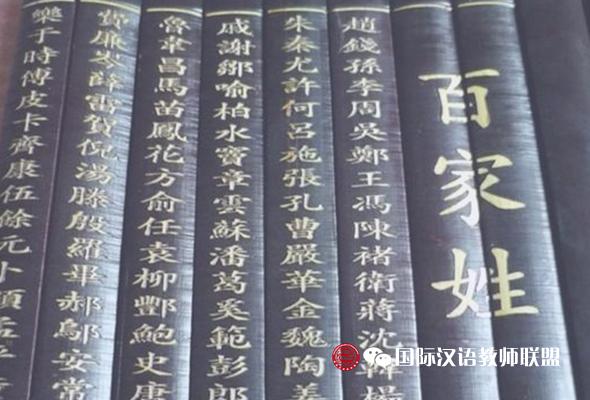 百家姓
趙錢孫李周吳鄭王馮陳褚衛蔣沈韓楊
朱秦尤許何呂施張孔曹嚴華金魏陶姜
戚謝鄒喻柏水竇章雲蘇潘葛奚範彭郎
魯韋昌馬苗鳳花方俞任袁柳酆鮑史唐
費廉岑薛雷賀倪湯滕殷羅畢郝鄔安常
樂于時傅皮卞齊康伍餘元卜顧孟平
国际汉语教师联盟